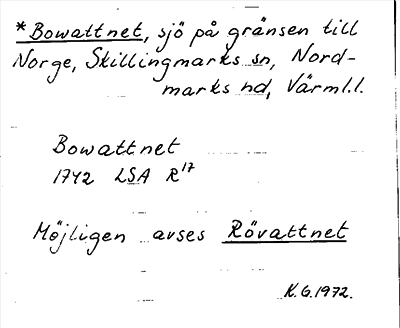 *Bowattnet, sjö på gränsen till
Norge, Skillingmarks sn, Nord-
marks hd, Värml.l.
Bowattnet
1742 LSA R17
Möjligen avses Rövattnet
K.G.1972.